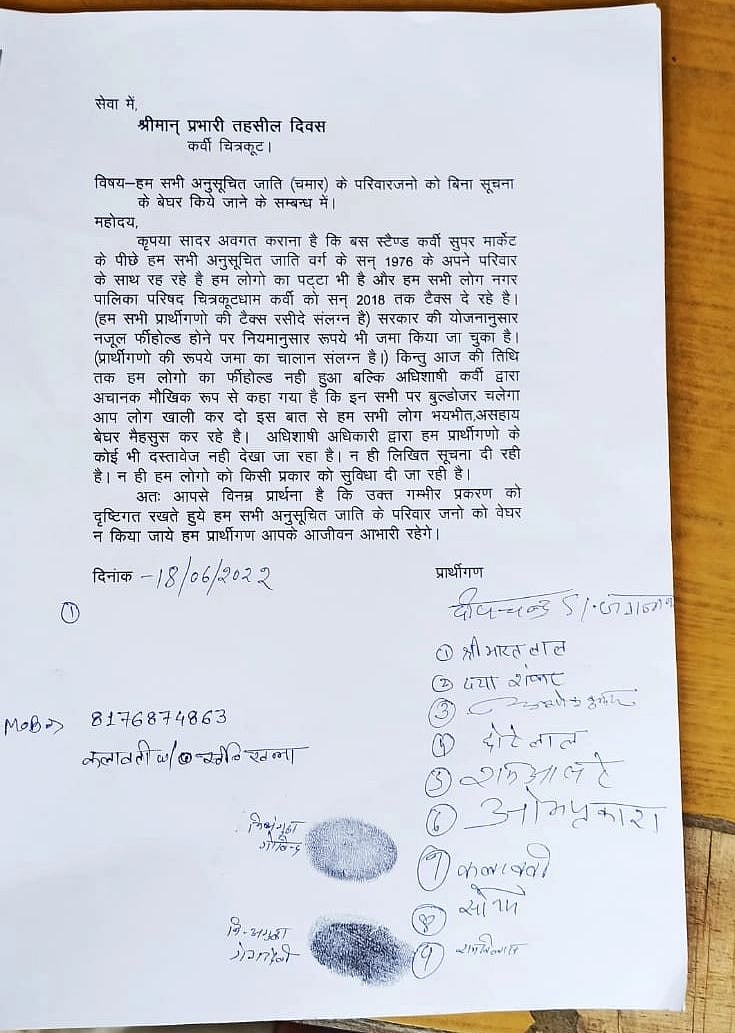 सेवा में,
श्रीमान् प्रभारी तहसील दिवस
कर्वी चित्रकूट।
विषय–हम सभी अनुसूचित जाति (चमार) के परिवारजनो को बिना सूचना
के बेघर किये जाने के सम्बन्ध में।
महोदय,
कृपया सादर अवगत कराना है कि बस स्टैण्ड कर्वी सुपर मार्केट
के पीछे हम सभी अनुसूचित जाति वर्ग के सन् 1976 के अपने परिवार
के साथ रह रहे है हम लोगो का पट्टा भी है और हम सभी लोग नगर
पालिका परिषद चित्रकूटधाम कर्वी को सन् 2018 तक टैक्स दे रहे है।
(हम सभी प्रार्थीगणो की टैक्स रसीदे संलग्न है) सरकार की योजनानुसार
नजूल र्फीहोल्ड होने पर नियमानुसार रूपये भी जमा किया जा चुका है।
(प्रार्थीगणो की रूपये जमा का चालान संलग्न है।) किन्तु आज की तिथि
तक हम लोगो का र्फीहोल्ड नही हुआ बल्कि अधिशाषी कर्वी द्वारा
अचानक मौखिक रूप से कहा गया है कि इन सभी पर बुल्डोजर चलेगा
आप लोग खाली कर दो इस बात से हम सभी लोग भयभीत,असहाय
बेघर मैहसुस कर रहे है। अधिशाषी अधिकारी द्वारा हम प्रार्थीगणो के
कोई भी दस्तावेज नही देखा जा रहा है। न ही लिखित सूचना दी रही
है। न ही हम लोगो को किसी प्रकार को सुविधा दी जा रही है।
अतः आपसे विनम्र प्रार्थना है कि उक्त गम्भीर प्रकरण को
दृष्टिगत रखते हुये हम सभी अनुसूचित जाति के परिवार जनो को वेघर
न किया जाये हम प्रार्थीगण आपके आजीवन आभारी रहेगे।
दिनांक -18/06/2022
प्रार्थीगण
①
① श्री भारत लाल
② दया शंकर
③
④ छोटे लाल
Mob⇒ 8176874863
कलावती w/o
⑤
⑥ ओमप्रकाश
⑦ कलावती
⑧
⑨